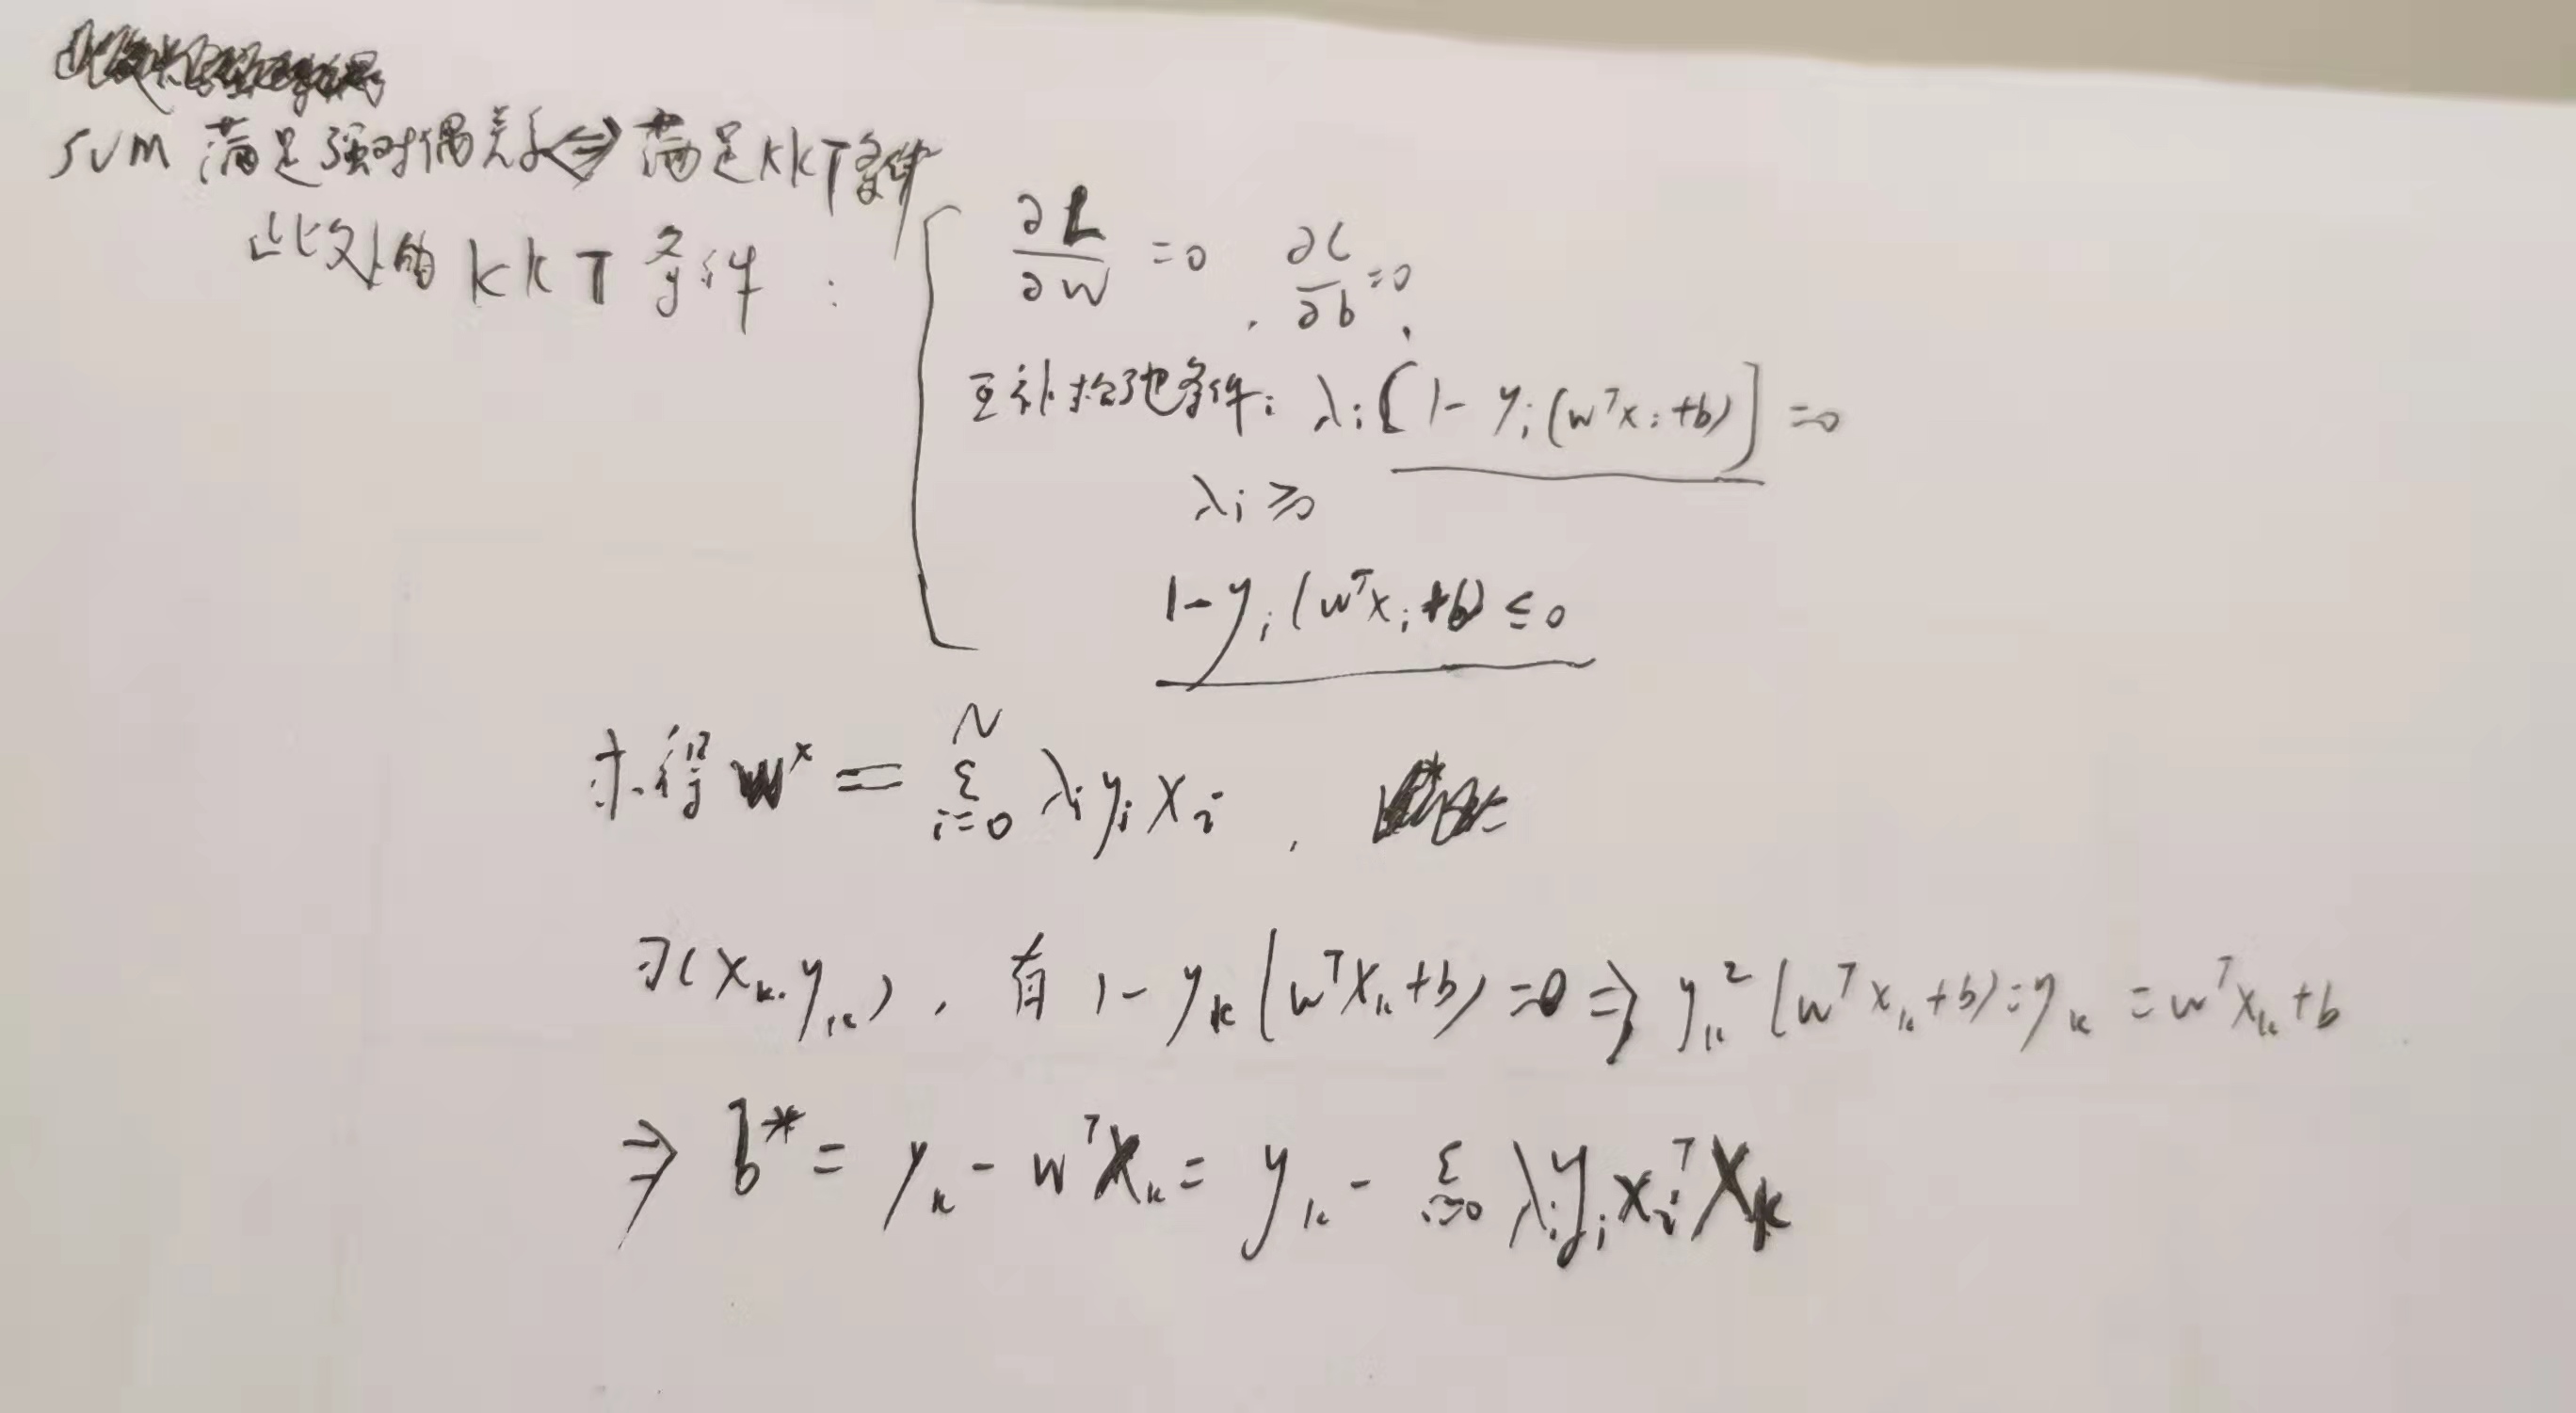 SVM 满足强对偶关系 ⇔ 满足KKT条件
此处的 KKT 条件:
∂L/∂w = 0 , ∂L/∂b = 0,
互补松弛条件: λi [1 - yi (w^T xi + b)] = 0
λi ≥ 0
1 - yi (w^T xi + b) ≤ 0
求得 w* = Σ_{i=0}^{N} λi yi xi ,
∃(xk, yk), 有 1 - yk (w^T xk + b) = 0 ⇒ yk^2 (w^T xk + b) = yk = w^T xk + b
⇒ b* = yk - w^T xk = yk - Σ_{i=0} λi yi xi^T xk